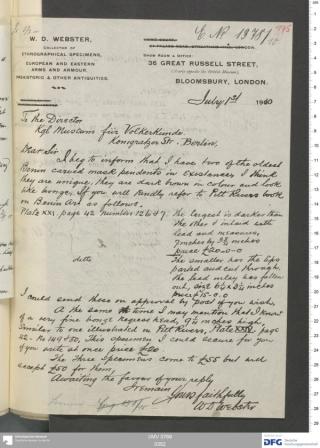 E. No 1348/10
W. D. WEBSTER,
COLLECTOR OF
ETHNOGRAPHICAL SPECIMENS,
EUROPEAN AND EASTERN
ARMS AND ARMOUR,
PREHISTORIC & OTHER ANTIQUITIES.
SHOW ROOM & OFFICE:
36 GREAT RUSSELL STREET,
(Nearly opposite the British Museum),
BLOOMSBURY, LONDON.
July 1st 1900
To the Director
Kgl Museums für Volkerkunde.
Konigratzer Str. Berlin.
Dear Sir
I beg to inform that I have two of the oldest
Benin carved mask pendents in existence, I think
they are unique, they are dark brown in colour and look
like bronze, If you will kindly refer to Pitt Rivers book
on Benin Art as follows:
Plate XXI. page 42 number 126 & 7:
the largest is darker than
the other & inlaid with
lead and measures,
7 inches by 3 inches
price £20-0-0
ditto
The smaller has the lips
parted and cut through,
the lead inley has fallen
out, size
price £15-0-0
I could send these on approval by post if you wish.
At the same time I may mention that I know
of a very fine bronze negress head, 9½ inches high,
Similar to one illustrated in Pitt Rivers, Plate
42 - No 149 & 50, This specimen I could secure for you
if you write at once, price £20
The three specimens come to £55 but will
accept £50 for them,
Awaiting the favor of your reply
I remain
Yours faithfully
W D Webster
DMV 3769
DFG